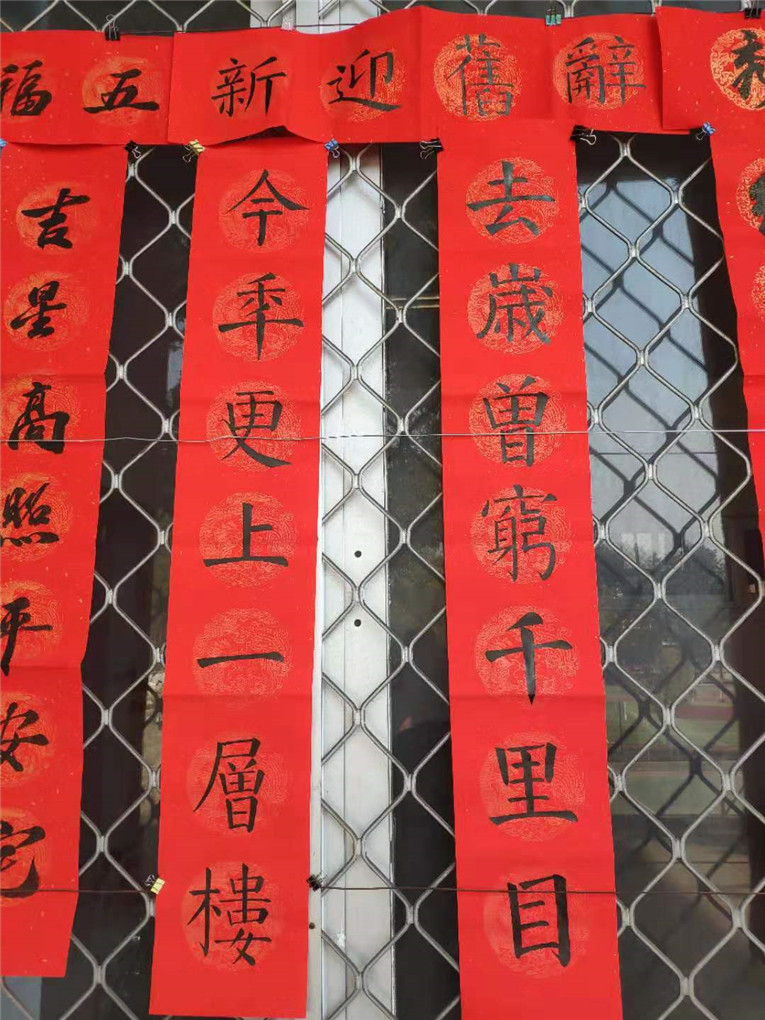 辭舊迎新
去歲曾窮千里目
今年更上一層樓
五福
吉星高照平安宅